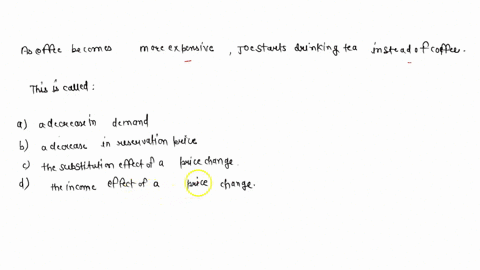 As offee becomes more expensive, Joe starts drinking tea instead of coffee.
This is called:
a) a decrease in demand
b) a decrease in reservation price
c) the substitution effect of a price change.
d) the income effect of a price change.